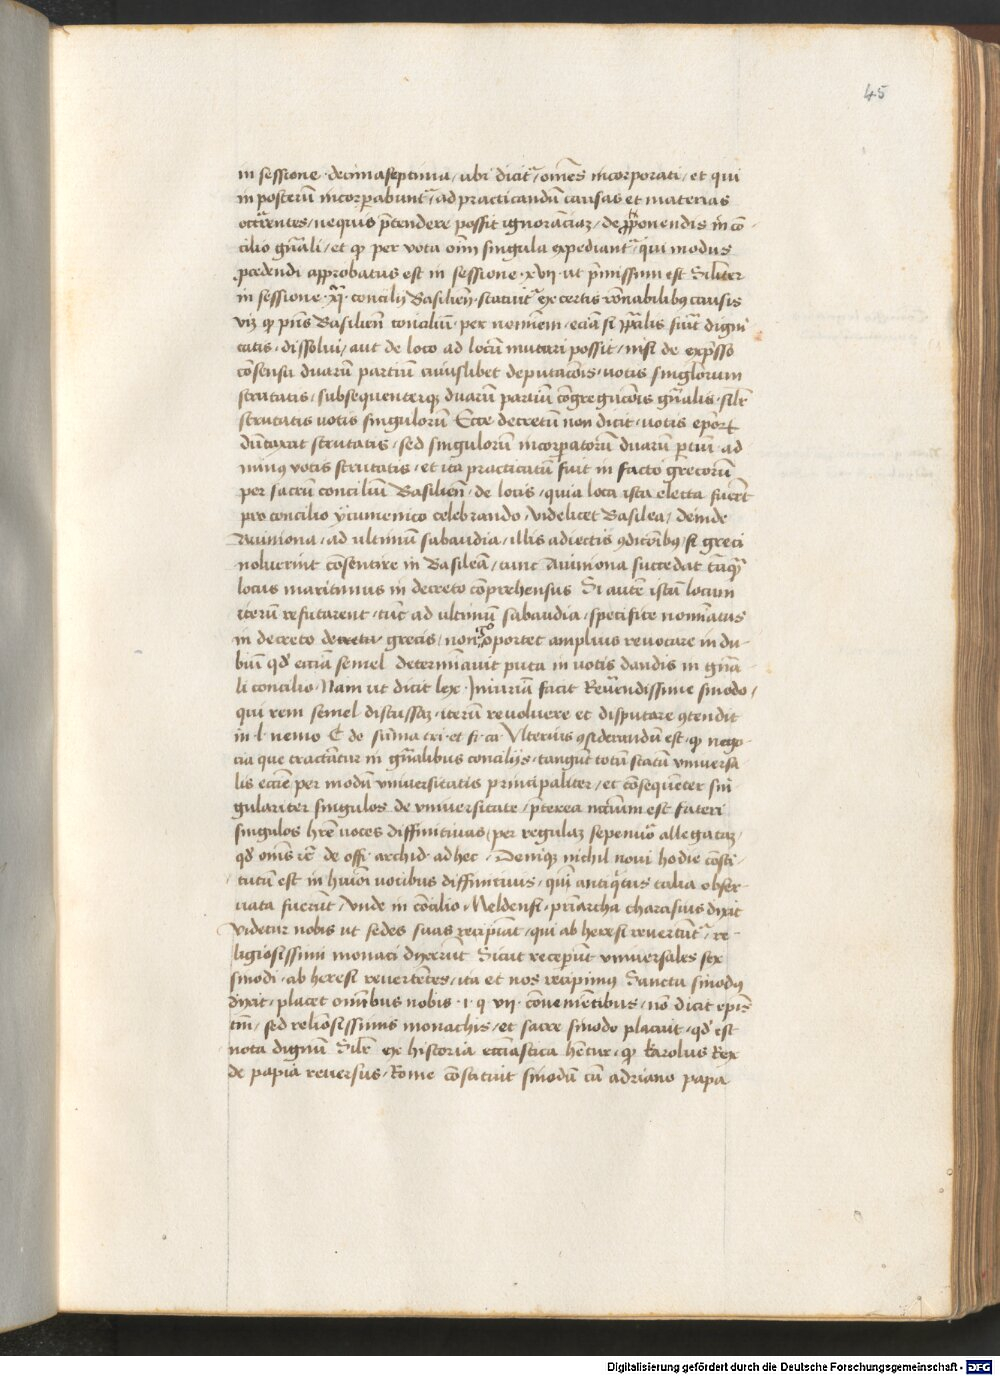 45
in sessione · decimaseptima / ubi dicit᷑ omēs incorporati / et qui
in posterū incorꝑabunt᷑ / ad practicandū causas et materias
occurrentes / ne quis p̄tendere possit ignoranciaꝫ / de ꝓponendis in cō-
cilio gn̄ali / et qꝫ per vota oīm singula expediant᷑ / qui modus
ꝓcedendi approbatus est in sessione · xvii · ut p̄missum est Similiter
in sessione · xi · concilij Basilien̄ · statuit᷑ ex certis rōnabilibꝰ causis
viꝫ qꝫ pn̄s Basilien̄ conciliū · per neminem / eciā si papalis fuīt digni
tatis · dissolui / aut de loco ad locū mutari possit / nisi de exp̄sso
cōsensu duarū partiū cuiuslibet deputacōis · votis singlorum
scrutatis / subsequenterqꝫ duarū partiū cōgregacōis gn̄alis · silr̄
scrutatis votis singulorū Ecce decretū non dicit · votis ep̄orꝝ
dūtaxat scrutatis / sed singulorū incorꝑatorū duarū ꝑtiū · ad
minꝰ votis scrutatis / et ita practicatū fuit in facto grecorū
per sacrū conciliū Basilien̄ · de locis / quia loca ista electa fuer̄t
pro concilio ycumenico celebrando / videlicet Basilea / deinde
Auiniona / ad ultimū sabaudia / illis adiectis ꝯdicōibꝰ / si greci
noluerint cōsentire in Basileā / tunc Auiniona succedat tāqꝫ
locus maritimus in decreto cōprehensus Si autē istū locum
iterū refutarent / tūc ad ultimū sabaudia / specifice nominatus
in decreto grecis / non oportet amplius reuocare in du-
biū qd̄ ecc̄ia semel determinauit puta in votis dandis in gn̄a-
li concilio · Nam ut dicit lex · Iniuriā facit Reuerendissime sinodo /
qui rem semel discussaꝫ / iterū reuoluere et disputare ꝯtendit
in · l · nemo C de sum̄a tri · et fi · ca · Ulterius ꝯsiderandū est · qꝫ nego-
cia que tractātur in gn̄alibus concilijs / tangūt totū statū vniuersa
lis ecc̄ie per modū vniuersitatis principaliter / et cōsequēter sin
gulariter singulos de vniuersitate / p̄terea nc̄cium est fateri
singulos hr̄e voces diffinitiuas / per regulaꝫ sepenūo allegataꝫ /
qd̄ om̄s ꝛc̄ de offi · archid · ad hec / Deniqꝫ nichil noui hodie cōsti-
tutū est in huiōi vocibus diffinitiuis / quī antiqͥtus talia obser-
uata fuerūt / Vnde in cōcilio · Meldensi · pr̄iarcha charasius dixit
videtur nobis ut sedes suas recipiāt / qui ab heresi reuertūt᷑ / re-
ligiosissimi monaci dixerūt Sicut receperūt vniuersales sex
sinodi / ab heresi reuertētes / ita et nos recipimꝰ Sancta sinodꝰ
dixit / placet omībus nobis · i · q · vii · cōuenientibus / nō dicit ep̄is
tm̄ / sed religiōsissimis monachis / et sacre sinodo placuit · qd̄ est
nota dignū Silr̄ ex historia ecc̄iastica hētur / qꝫ karolus Rex
de papia reuersus / Rome cōstituit sinodū cū adriano papa
Digitalisierung gefördert durch die Deutsche Forschungsgemeinschaft - DFG